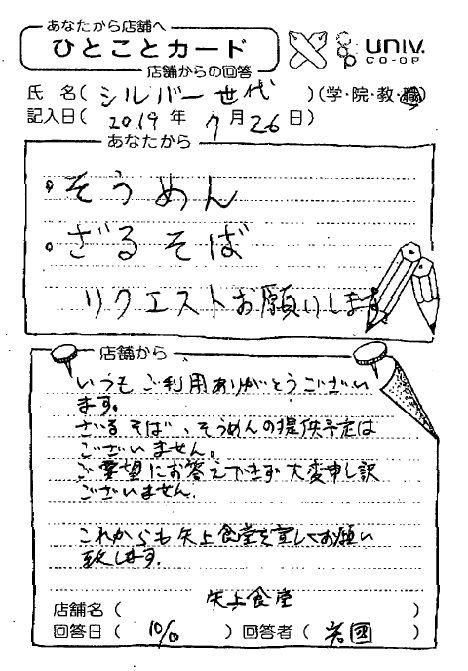 あなたから店舗へ
ひとことカード
店舗からの回答
UNIV.
CO-OP
氏 名( シルバー世代 )(学・院・教・職)
記入日( 2019 年 7月 26 日)
あなたから
・そうめん
・ざるそば
リクエストお願いします
店舗から
いつもご利用ありがとうござい
ます。
ざるそば、そうめんの提供予定は
ございません。
ご要望にお答えできず大変申し訳
ございません.
これからも矢上食堂を宜しくお願い
致します.
店舗名( 矢上食堂 )
回答日( ) 回答者( 岩國 )